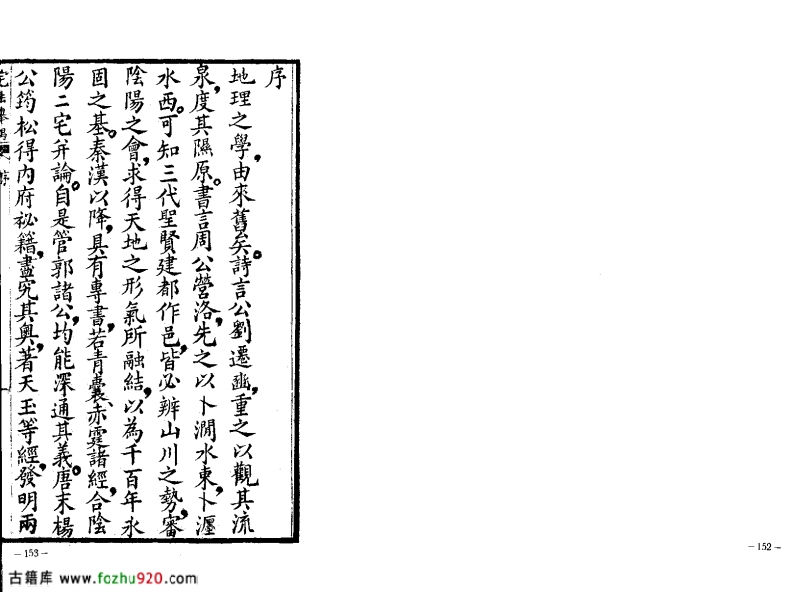 序
地理之學，由來舊矣。詩言公劉遷豳，重之以觀其流
泉，度其隰原。書言周公營洛，先之以卜澗水東，卜瀍
水西。可知三代聖賢建都作邑，皆必辨山川之勢，審
陰陽之會，求得天地之形氣所融結，以為千百年永
固之基。秦漢以降，具有專書，若青囊赤霆諸經，合陰
陽二宅并論。自是管郭諸公，均能深通其義。唐末楊
公筠松得內府祕籍，盡究其奧，著天玉等經，發明兩
序
—153—
—152—
古籍库 www.fozhu920.com